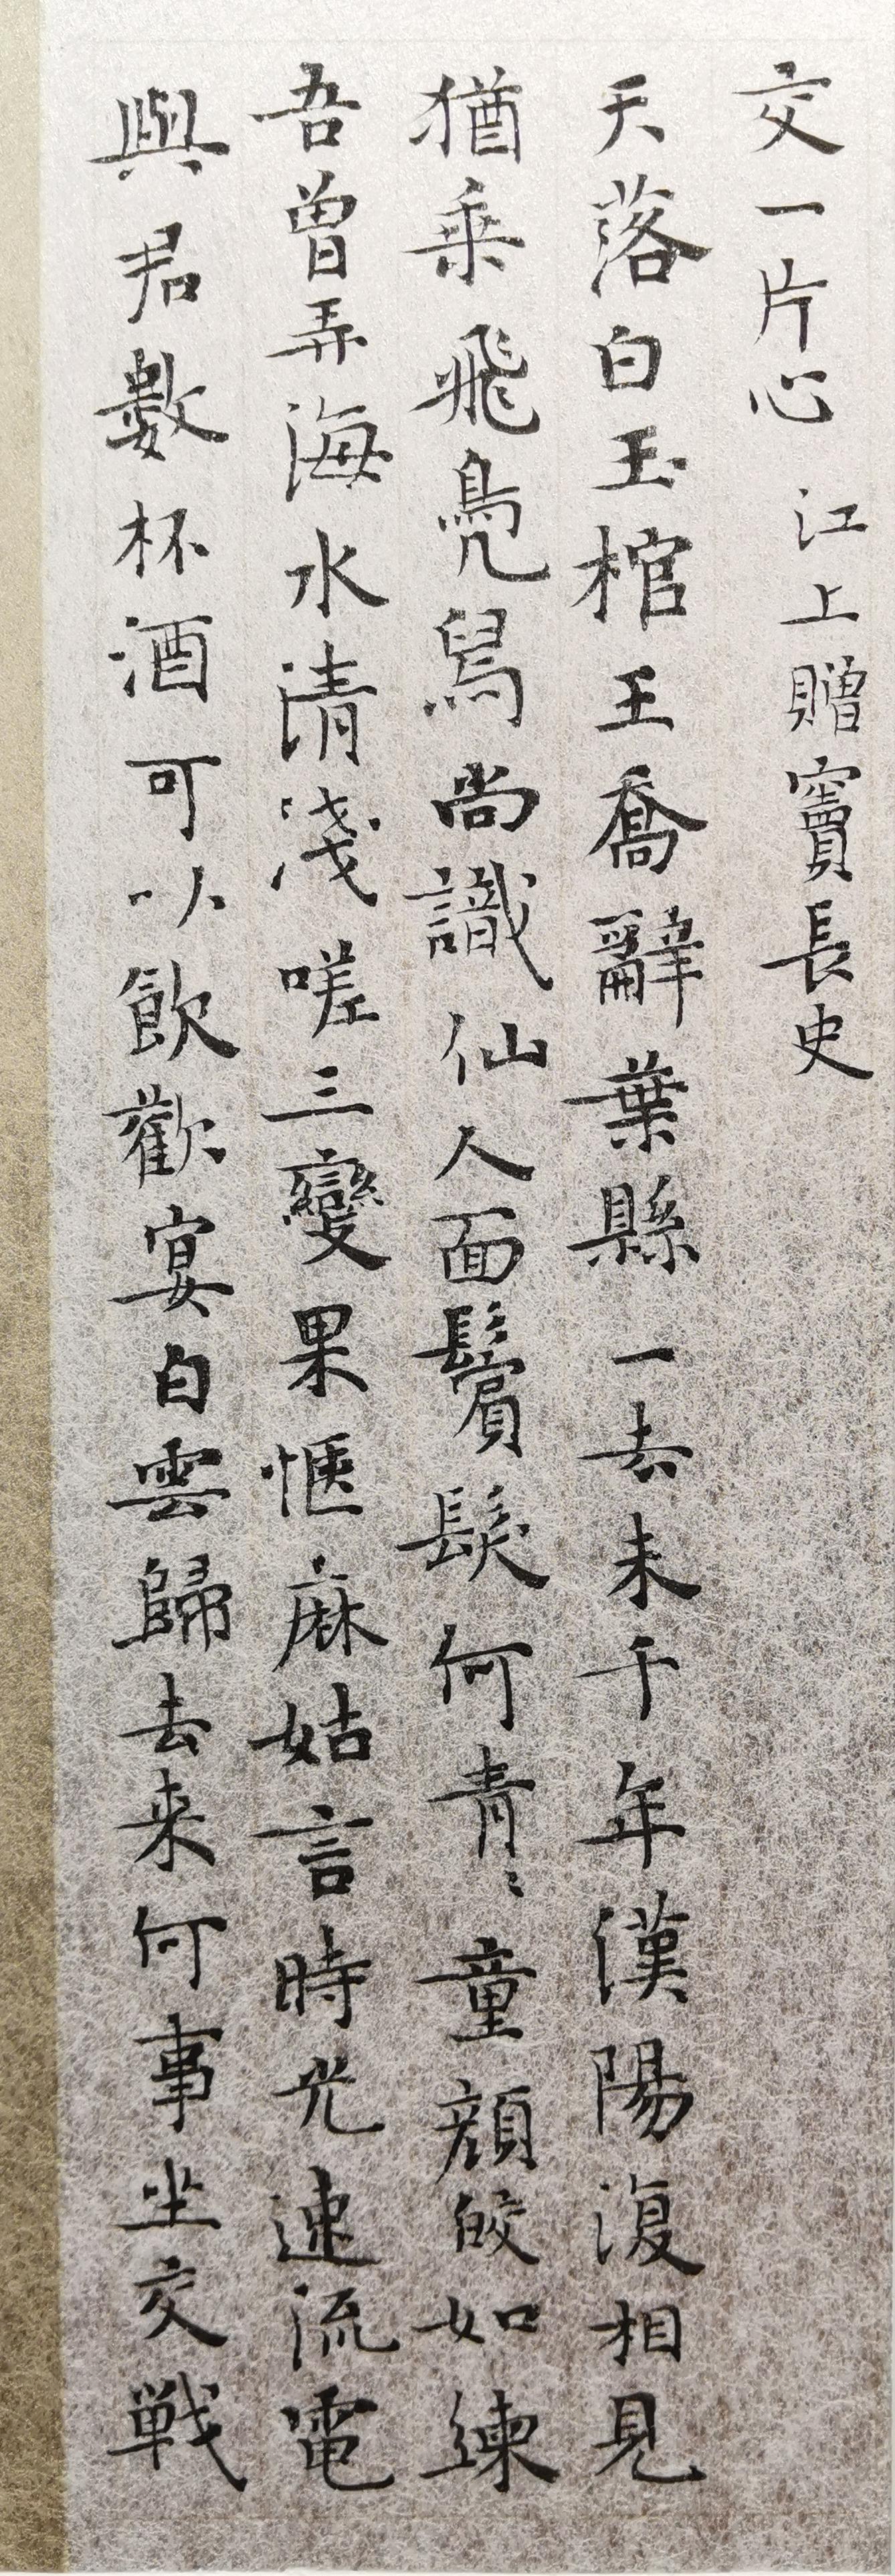 交一片心 江上贈竇長史
天落白玉棺王喬辭葉縣一去未千年漢陽復相見
猶乗飛鳧舄尚識仙人面鬢髮何青〻童顏皎如練
吾曾弄海水清淺嗟三變果愜麻姑言時光速流電
與君數杯酒可以飲歡宴白雲歸去来何事坐交戰